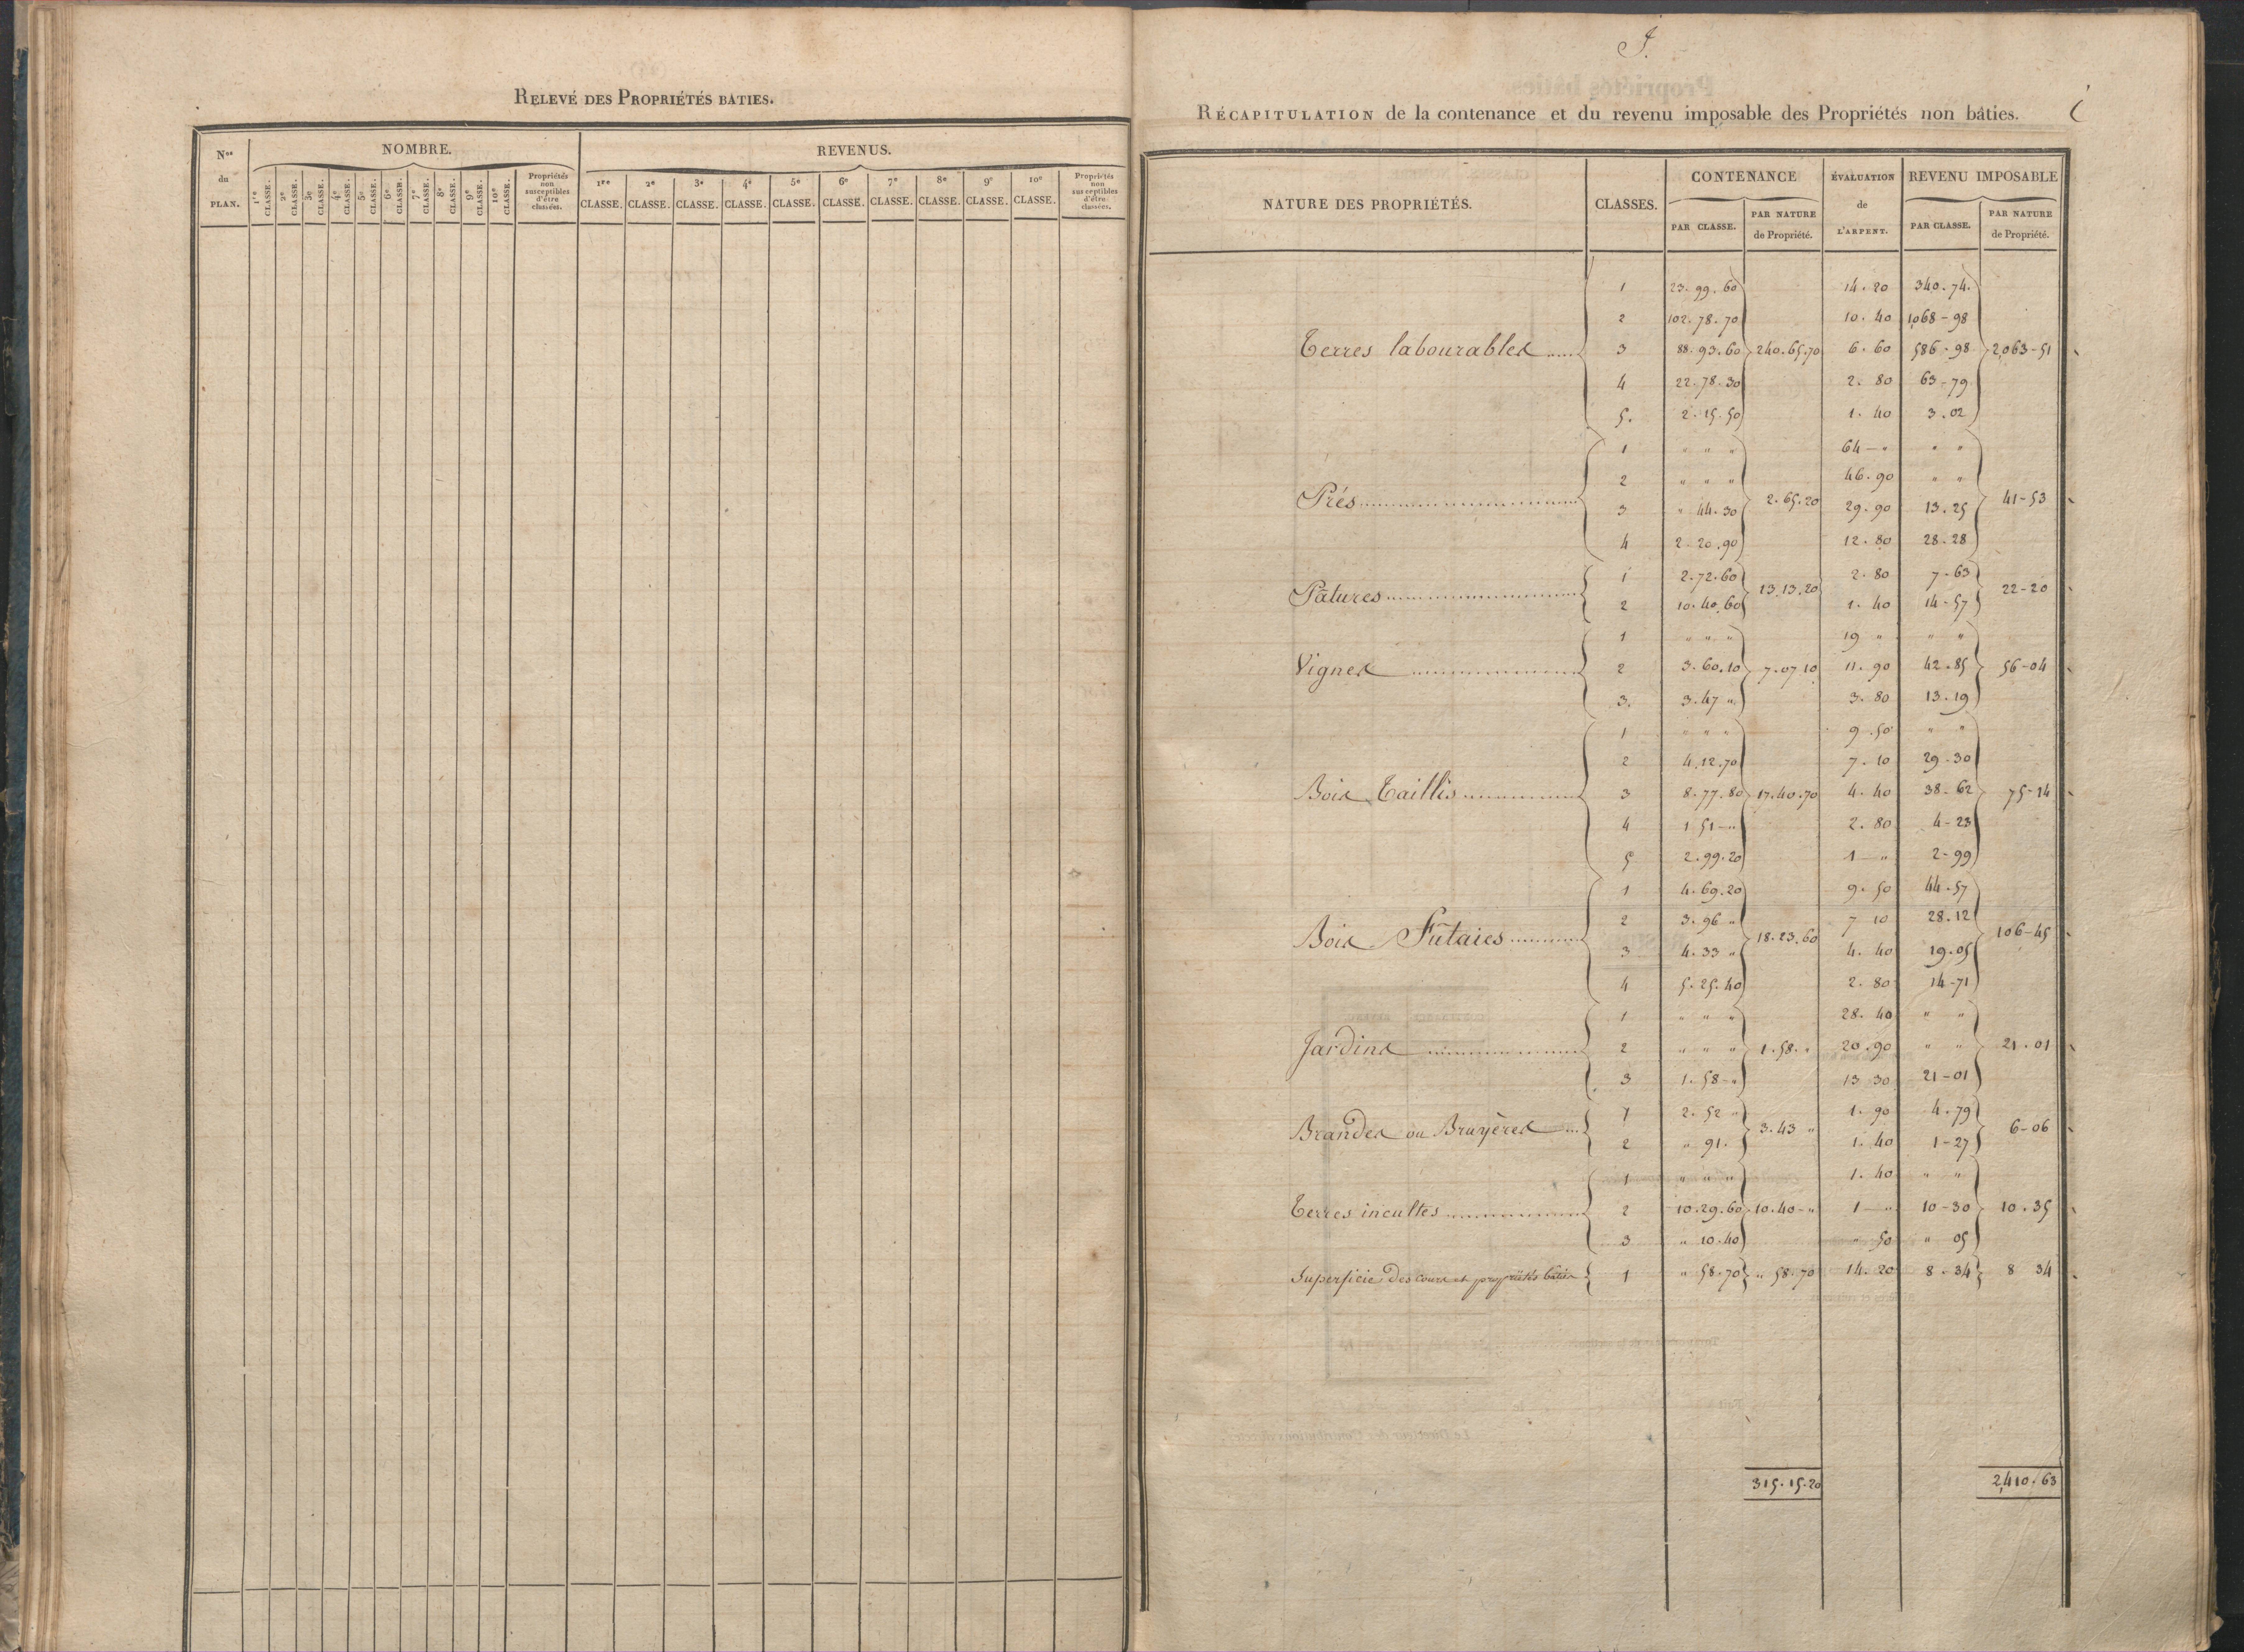 RELEVÉ DES PROPRIÉTÉS BATIES.
Nos du PLAN.
NOMBRE.
1re CLASSE. 2e CLASSE. 3e CLASSE. 4e CLASSE. 5e CLASSE. 6e CLASSE. 7e CLASSE. 8e CLASSE. 9e CLASSE. 10e CLASSE. Propriétés non susceptibles d'être classées.
REVENUS.
1re CLASSE. 2e CLASSE. 3e CLASSE. 4e CLASSE. 5e CLASSE. 6e CLASSE. 7e CLASSE. 8e CLASSE. 9e CLASSE. 10e CLASSE. Propriétés non susceptibles d'être classées.
RÉCAPITULATION de la contenance et du revenu imposable des Propriétés non bâties.
NATURE DES PROPRIÉTÉS. CLASSES. CONTENANCE ÉVALUATION de L'ARPENT. REVENU IMPOSABLE
PAR CLASSE. PAR NATURE de Propriété. PAR CLASSE. PAR NATURE de Propriété.
1 23.99.60 14.20 340.74.
2 102.78.70 10.40 1068-98
Terres labourables 3 88.93.60 240.65.70 6.60 586-98 2,063-51
4 22.78.30 2.80 63-79
5. 2.15.50 1.40 3.02
1 " " " 64-" " "
2 " " " 46.90 " "
Prés 3 " 44.30 2.65.20 29.90 13.25 41-53
4 2-20.90 12.80 28.28
Pâtures 1 2.72.60 13.13.20 2.80 7-63 22-20
2 10.40.60 1.40 14-57
1 " " " 19 " " "
Vignes 2 3.60.10 7.07 10 11.90 42.85 56-04
3. 3.47 " 3.80 13.19
1 " " " 9.50 " "
2 4.12.70 7.10 29.30
Bois Taillis 3 8.77.80 17.40.70 4.40 38-62 75-14
4 1 51-" 2.80 4-23
5 2.99.20 1-" 2-99
1 4.69.20 9.50 44.57
2 3.96 " 7 10 28.12
Bois Futaies 3 4.33 " 18.23.60 4.40 19.05 106-45
4 5.25.40 2.80 14-71
1 " " " 28.40 " "
Jardins 2 " " " 1.58." 20.90 " " 21.01
3 1.58-" 13 30 21-01
Brandes ou Bruyères 1 2.52 " 3.43 " 1.90 4.79 6-06
2 " 91. 1.40 1-27
1 " " " 1.40 " "
Terres incultes 2 10.29.60 10.40-" 1-" 10-30 10.35
3 " 10.40 " 50 " 05
Superficie des cours et propriétés bâties 1 " 58.70 " 58.70 14.20 8-34 8 34
315.15.20 2,410.63